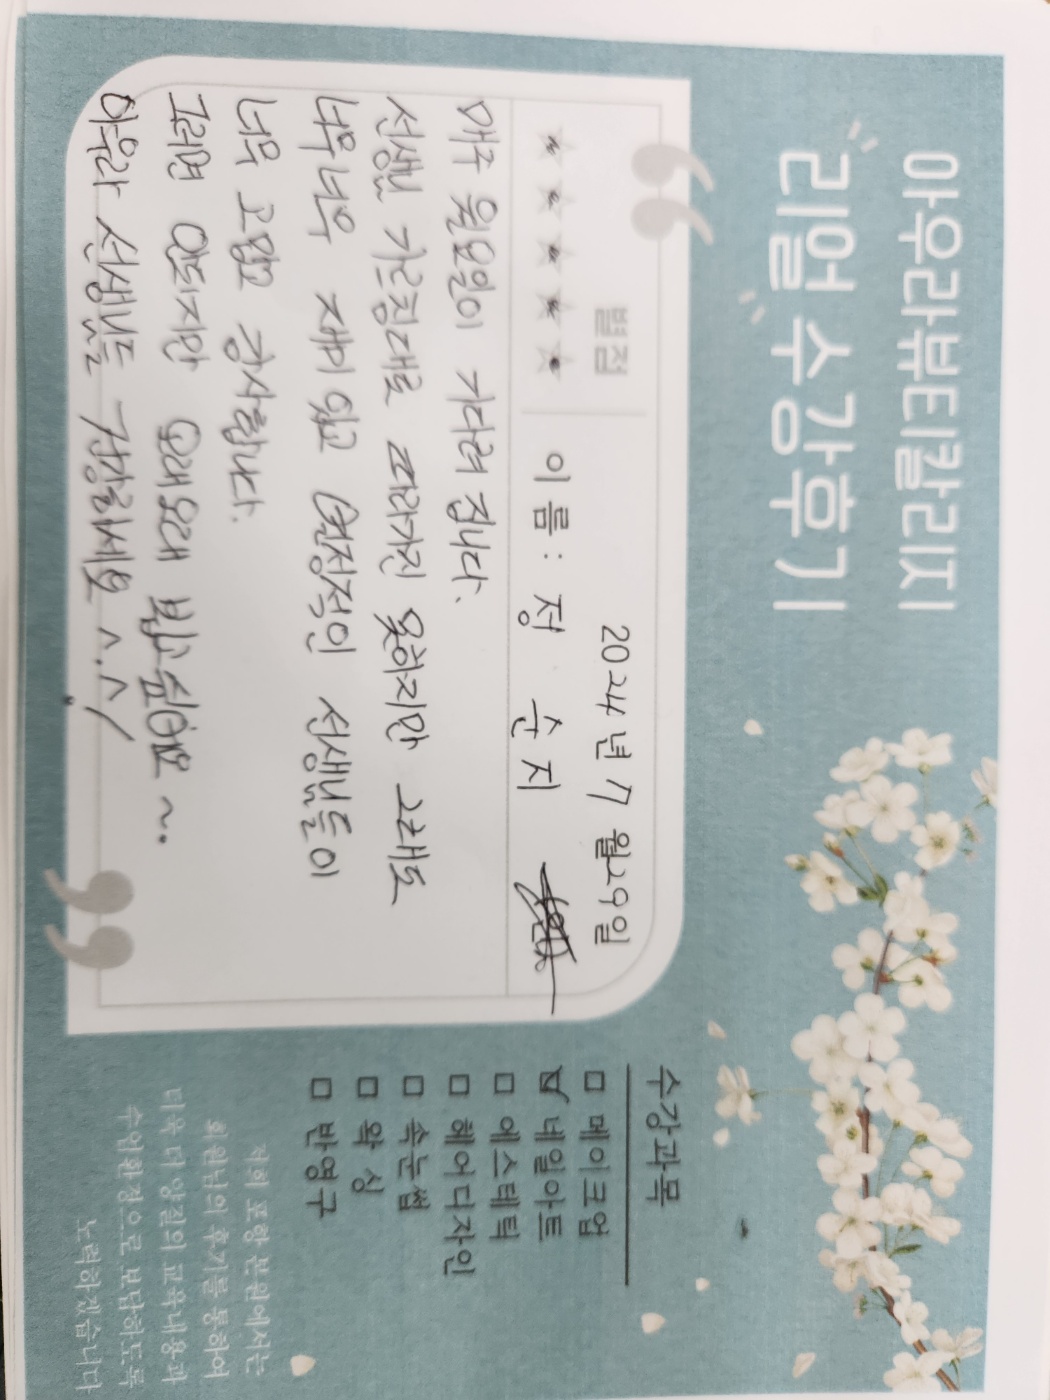 아우라뷰티칼리지
리얼 수강후기
별점
2024년 7월 29일
이름: 정 순 지
매주 월요일이 기다려 집니다.
선생님 가르침대로 따라가진 못하지만 그래도
너무너무 재미있고 열정적인 선생님들이
너무 고맙고 감사합니다.
그러면 안되지만 오래오래 보고싶어요~..
아우라 선생님들 건강하세요 ^.^/
수강과목
□ 메이크업
☑ 네일아트
□ 에스테틱
□ 헤어디자인
□ 속눈썹
□ 왁싱
□ 반영구
저희 포항 본원에서는
회원님의 후기를 통하여
더욱 더 양질의 교육내용과
수업환경으로 보답하도록
노력하겠습니다